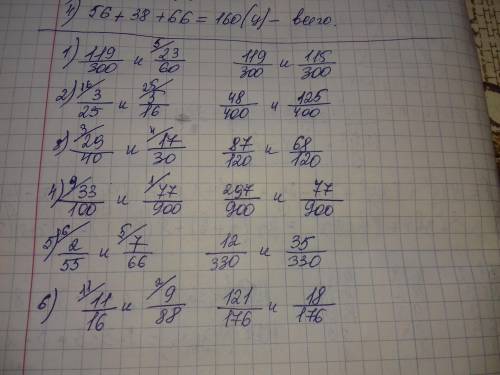 4) 56 + 38 + 66 = 160 (ч) - всего.
1) 119/300 и 5/ 23/60 119/300 и 115/300
2) 16/ 3/25 и 25/ 5/16 48/400 и 125/400
3) 3/ 29/40 и 4/ 17/30 87/120 и 68/120
4) 9/ 33/100 и 1/ 77/900 297/900 и 77/900
5) 6/ 2/55 и 5/ 7/66 12/330 и 35/330
6) 11/ 11/16 и 2/ 9/88 121/176 и 18/176